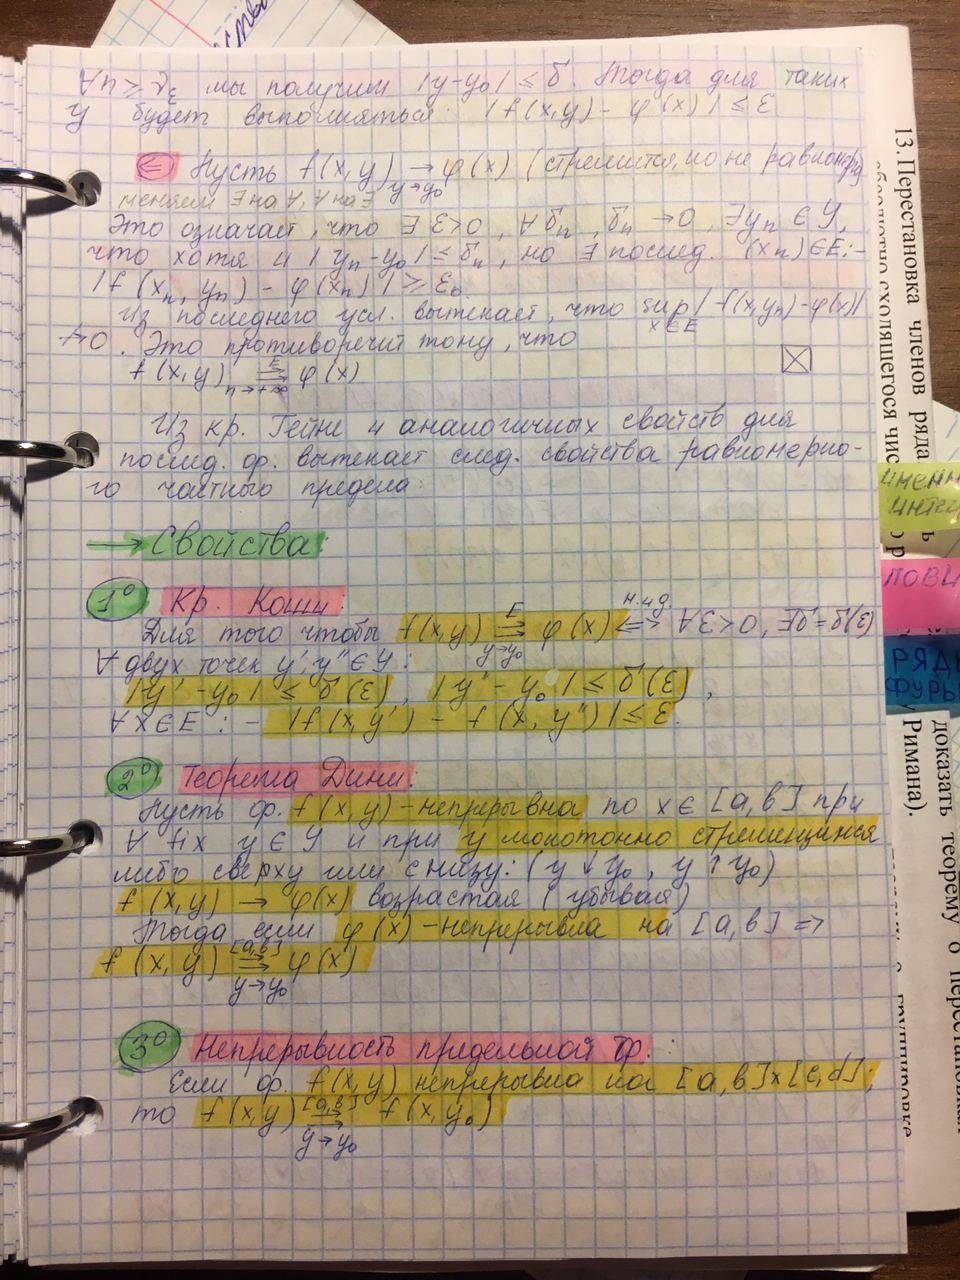 мы получим |y-y₀| ≤ δ. Тогда для таких
y будет выполняться: |f(x,y) - φ(x)| ≤ ε
⇐ Пусть f(x,y) → φ(x) (стремится, но не равномерно)
y→y₀
меняем ∃ на ∀, ∀ на ∃
Это означает, что ∃ ε>0, ∀ δₙ, δₙ → 0, ∃yₙ ∈ Y,
что хотя и |yₙ-y₀| ≤ δₙ, но ∃ послед. (xₙ) ∈ E: -
|f(xₙ, yₙ) - φ(xₙ)| ≥ ε₀
Из последнего усл. вытекает, что sup |f(x,yₙ)-φ(x)|
x∈E
↛0. Это противоречит тому, что
f(x,y) ⇉ φ(x)
E
n→+∞
Из кр. Гейне и аналогичных свойств для
послед. ф. вытекает след. свойства равномерно-
го частного предела:
→ Свойства:
1⁰ Кр. Коши:
Для того чтобы f(x,y) ⇉ φ(x) ⇔ ∀ ε>0, ∃δ=δ(ε)
E
y→y₀
н. и д.
∀ двух точек y', y'' ∈ Y:
|y' - y₀| ≤ δ(ε), |y'' - y₀| ≤ δ(ε),
∀ x∈E : - |f(x,y') - f(x,y'')| ≤ ε.
2⁰ Теорема Дини:
Пусть ф. f(x,y) - непрерывна по x ∈ [a,b] при
∀ fix y ∈ Y и при y монотонно стремящимся
либо сверху или снизу: (y ↓ y₀, y ↑ y₀)
f(x,y) → φ(x) возрастая (убывая)
Тогда если φ(x) - непрерывна на [a,b] ⇒
f(x,y) ⇉ φ(x)
[a,b]
y→y₀
3⁰ Непрерывность предельной ф.:
Если ф. f(x,y) непрерывна на [a,b]×[c,d];
то f(x,y) ⇉ f(x,y₀)
[a,b]
y→y₀
13. Перестановка членов ряда
сходящегося
доказать теорему о перестановках
Римана).
группировке
РЯД
ФУРЬ